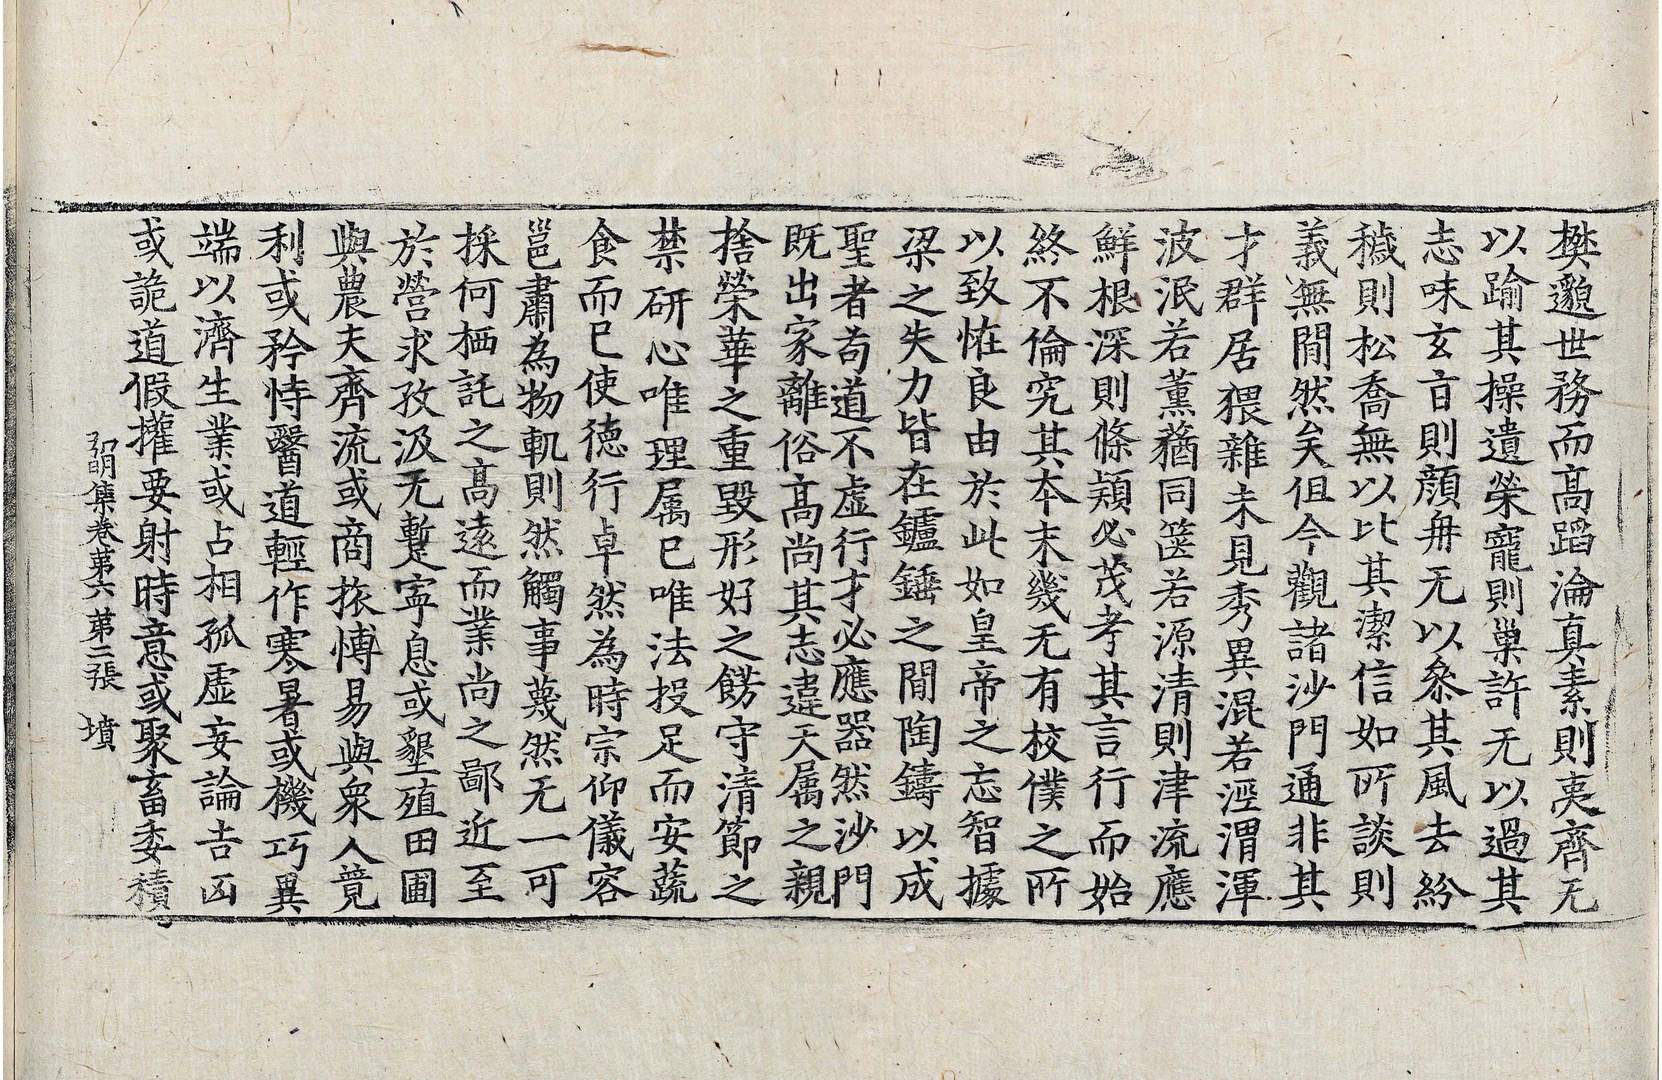 樊邈世務而高蹈淪真素則夷齊无
以踰其操遺榮寵則巢許无以過其
志味玄旨則顔冉无以叅其風去紛
穢則松喬無以比其潔信如所談則
義無間然矣但今觀諸沙門通非其
才群居猥雜未見秀異混若涇渭渾
波泯若薰蕕同篋若源清則津流應
鮮根深則條穎必茂考其言行而始
終不倫究其本末幾无有校僕之所
以致恠良由於此如皇帝之忘智據
梁之失力皆在鑪錘之間陶鑄以成
聖者苟道不虚行才必應器然沙門
既出家離俗高尚其志違天属之親
捨榮華之重毀形好之餝守清節之
禁研心唯理属已唯法投足而安蔬
食而已使徳行卓然為時宗仰儀容
邕肅為物軌則然觸事蔑然无一可
採何栖託之高遠而業尚之鄙近至
於營求孜汲无蹔寧息或墾殖田圃
與農夫齊流或商旅愽易與衆人競
利或矜恃醫道輕作寒暑或機巧異
端以濟生業或占相孤虚妄論吉凶
或詭道假權要射時意或聚畜委積
弘明集卷第六 第二張 墳